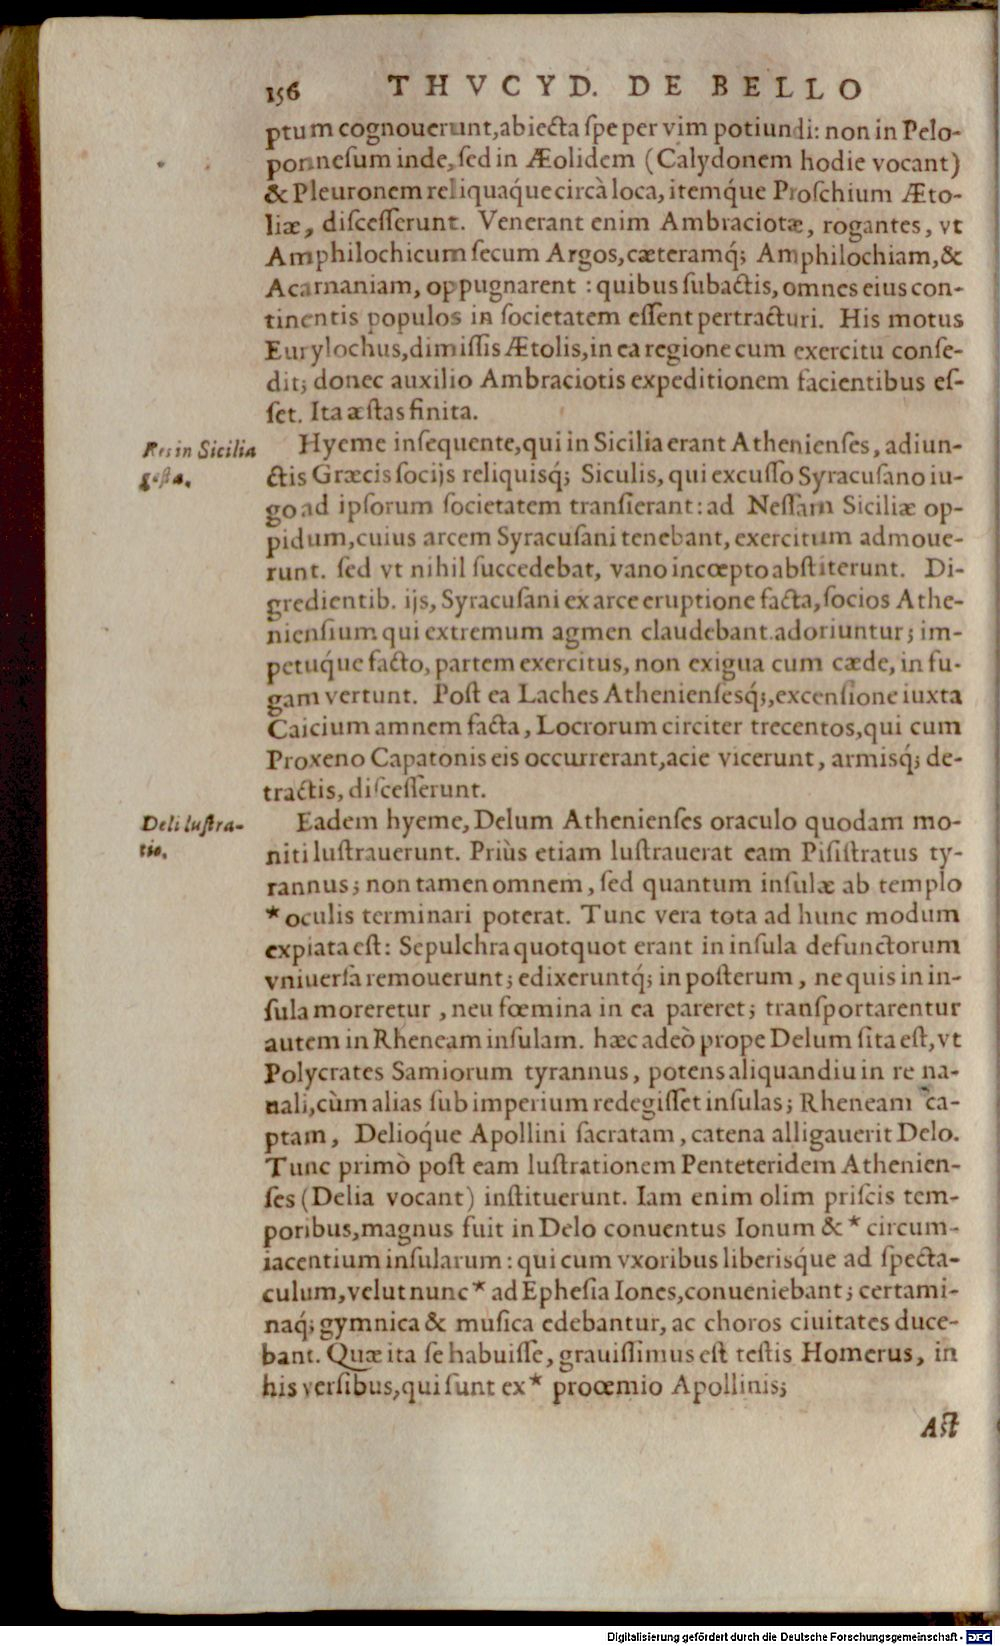 156 THVCYD. DE BELLO
ptum cognouerunt, abiecta spe per vim potiundi: non in Pelo-
ponnesum inde, sed in Æolidem (Calydonem hodie vocant)
& Pleuronem reliquaq́ue circà loca, itemq́ue Proschium Æto-
liæ, discesserunt. Venerant enim Ambraciotæ, rogantes, vt
Amphilochicum secum Argos, cæteramq́; Amphilochiam, &
Acarnaniam, oppugnarent : quibus subactis, omnes eius con-
tinentis populos in societatem essent pertracturi. His motus
Eurylochus, dimissis Ætolis, in ea regione cum exercitu conse-
dit; donec auxilio Ambraciotis expeditionem facientibus es-
set. Ita æstas finita.
Res in Sicilia
gestæ.
Hyeme insequente, qui in Sicilia erant Athenienses, adiun-
ctis Græcis socijs reliquisq́; Siculis, qui excusso Syracusano iu-
go ad ipsorum societatem transierant: ad Nessam Siciliæ op-
pidum, cuius arcem Syracusani tenebant, exercitum admoue-
runt. sed vt nihil succedebat, vano incœpto abstiterunt. Di-
gredientib. ijs, Syracusani ex arce eruptione facta, socios Athe-
niensium qui extremum agmen claudebant adoriuntur; im-
petuq́ue facto, partem exercitus, non exigua cum cæde, in fu-
gam vertunt. Post ea Laches Atheniensesq́;, excensione iuxta
Caicium amnem facta, Locrorum circiter trecentos, qui cum
Proxeno Capatonis eis occurrerant, acie vicerunt, armisq́; de-
tractis, discesserunt.
Deli lustra-
tio.
Eadem hyeme, Delum Athenienses oraculo quodam mo-
niti lustrauerunt. Priùs etiam lustrauerat eam Pisistratus ty-
rannus; non tamen omnem, sed quantum insulæ ab templo
* oculis terminari poterat. Tunc vera tota ad hunc modum
expiata est: Sepulchra quotquot erant in insula defunctorum
vniuersa remouerunt; edixeruntq́; in posterum, ne quis in in-
sula moreretur, neu fœmina in ea pareret; transportarentur
autem in Rheneam insulam. hæc adeò prope Delum sita est, vt
Polycrates Samiorum tyrannus, potens aliquandiu in re na-
uali, cùm alias sub imperium redegisset insulas; Rheneam ca-
ptam, Delioq́ue Apollini sacratam, catena alligauerit Delo.
Tunc primò post eam lustrationem Penteteridem Athenien-
ses (Delia vocant) instituerunt. Iam enim olim priscis tem-
poribus, magnus fuit in Delo conuentus Ionum & * circum-
iacentium insularum : qui cum vxoribus liberisq́ue ad specta-
culum, velut nunc * ad Ephesia Iones, conueniebant; certami-
naq́; gymnica & musica edebantur, ac choros ciuitates duce-
bant. Quæ ita se habuisse, grauissimus est testis Homerus, in
his versibus, qui sunt ex * procemio Apollinis;
Ast
Digitalisierung gefördert durch die Deutsche Forschungsgemeinschaft - DFG